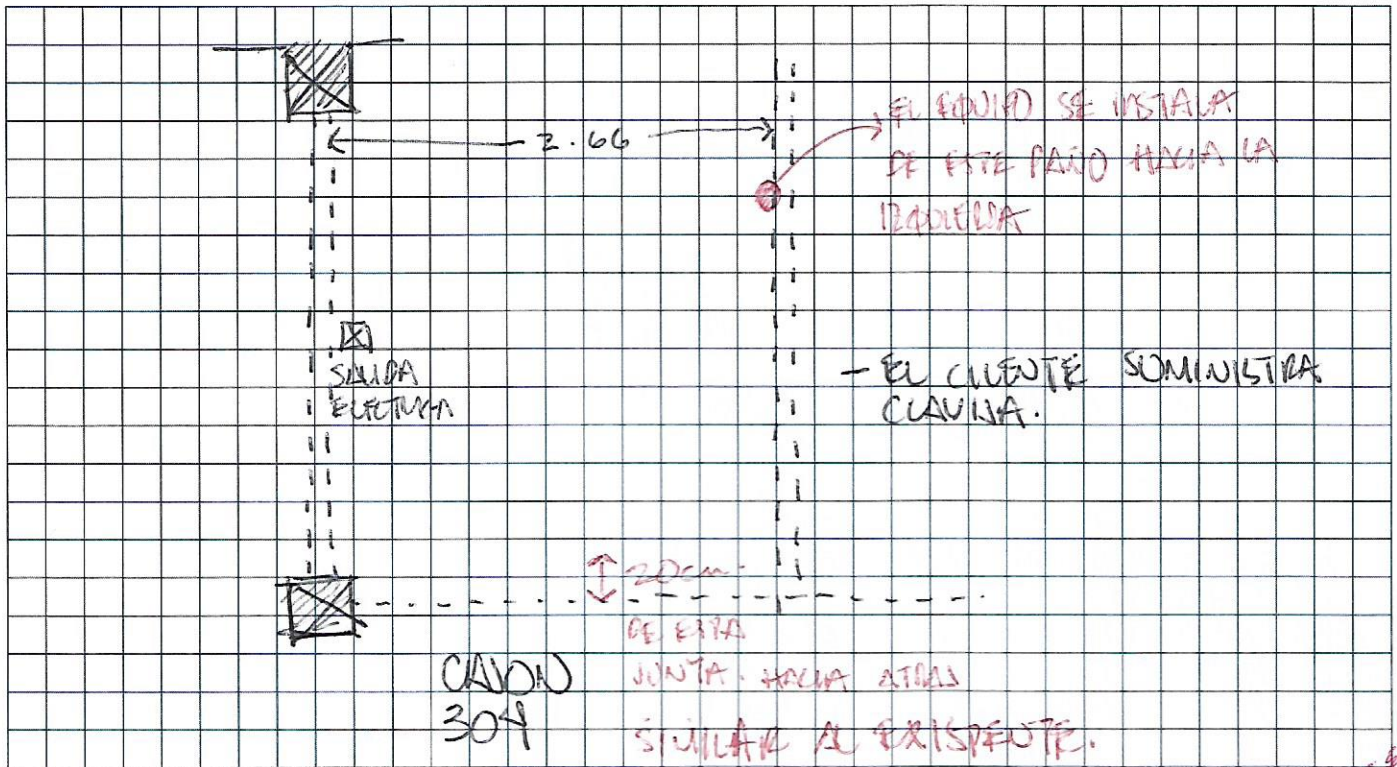 2.66
EL EQUIPO SE INSTALA
DE ESTE PAÑO HACIA LA
IZQUIERDA
SALIDA
ELECTRICA
- EL CLIENTE SUMINISTRA
CLAVIJA.
20cm.
DE ESTA
JUNTA. HACIA ATRAS
SIMILAR AL EXISTENTE.
CAJON
304